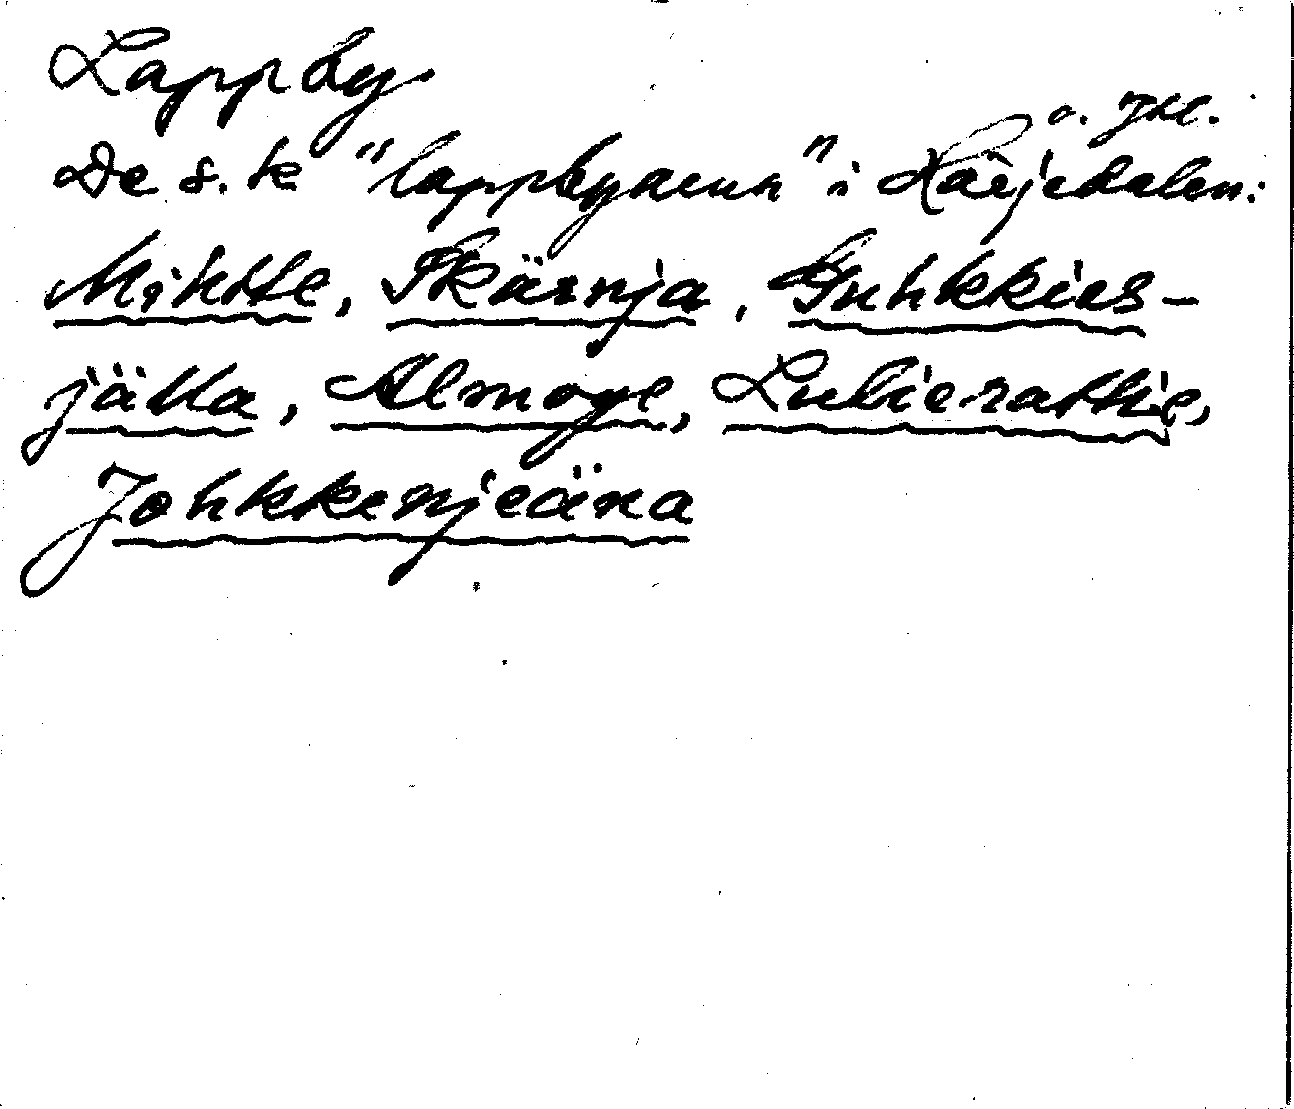 Lappby
De s.k "lappbyarna" i Härjedalen: o. Jtl.
Mihtte, Skärnja, Guhkkies-
jätta, Almoge, Lubierahkie,
Johkkenjeäna